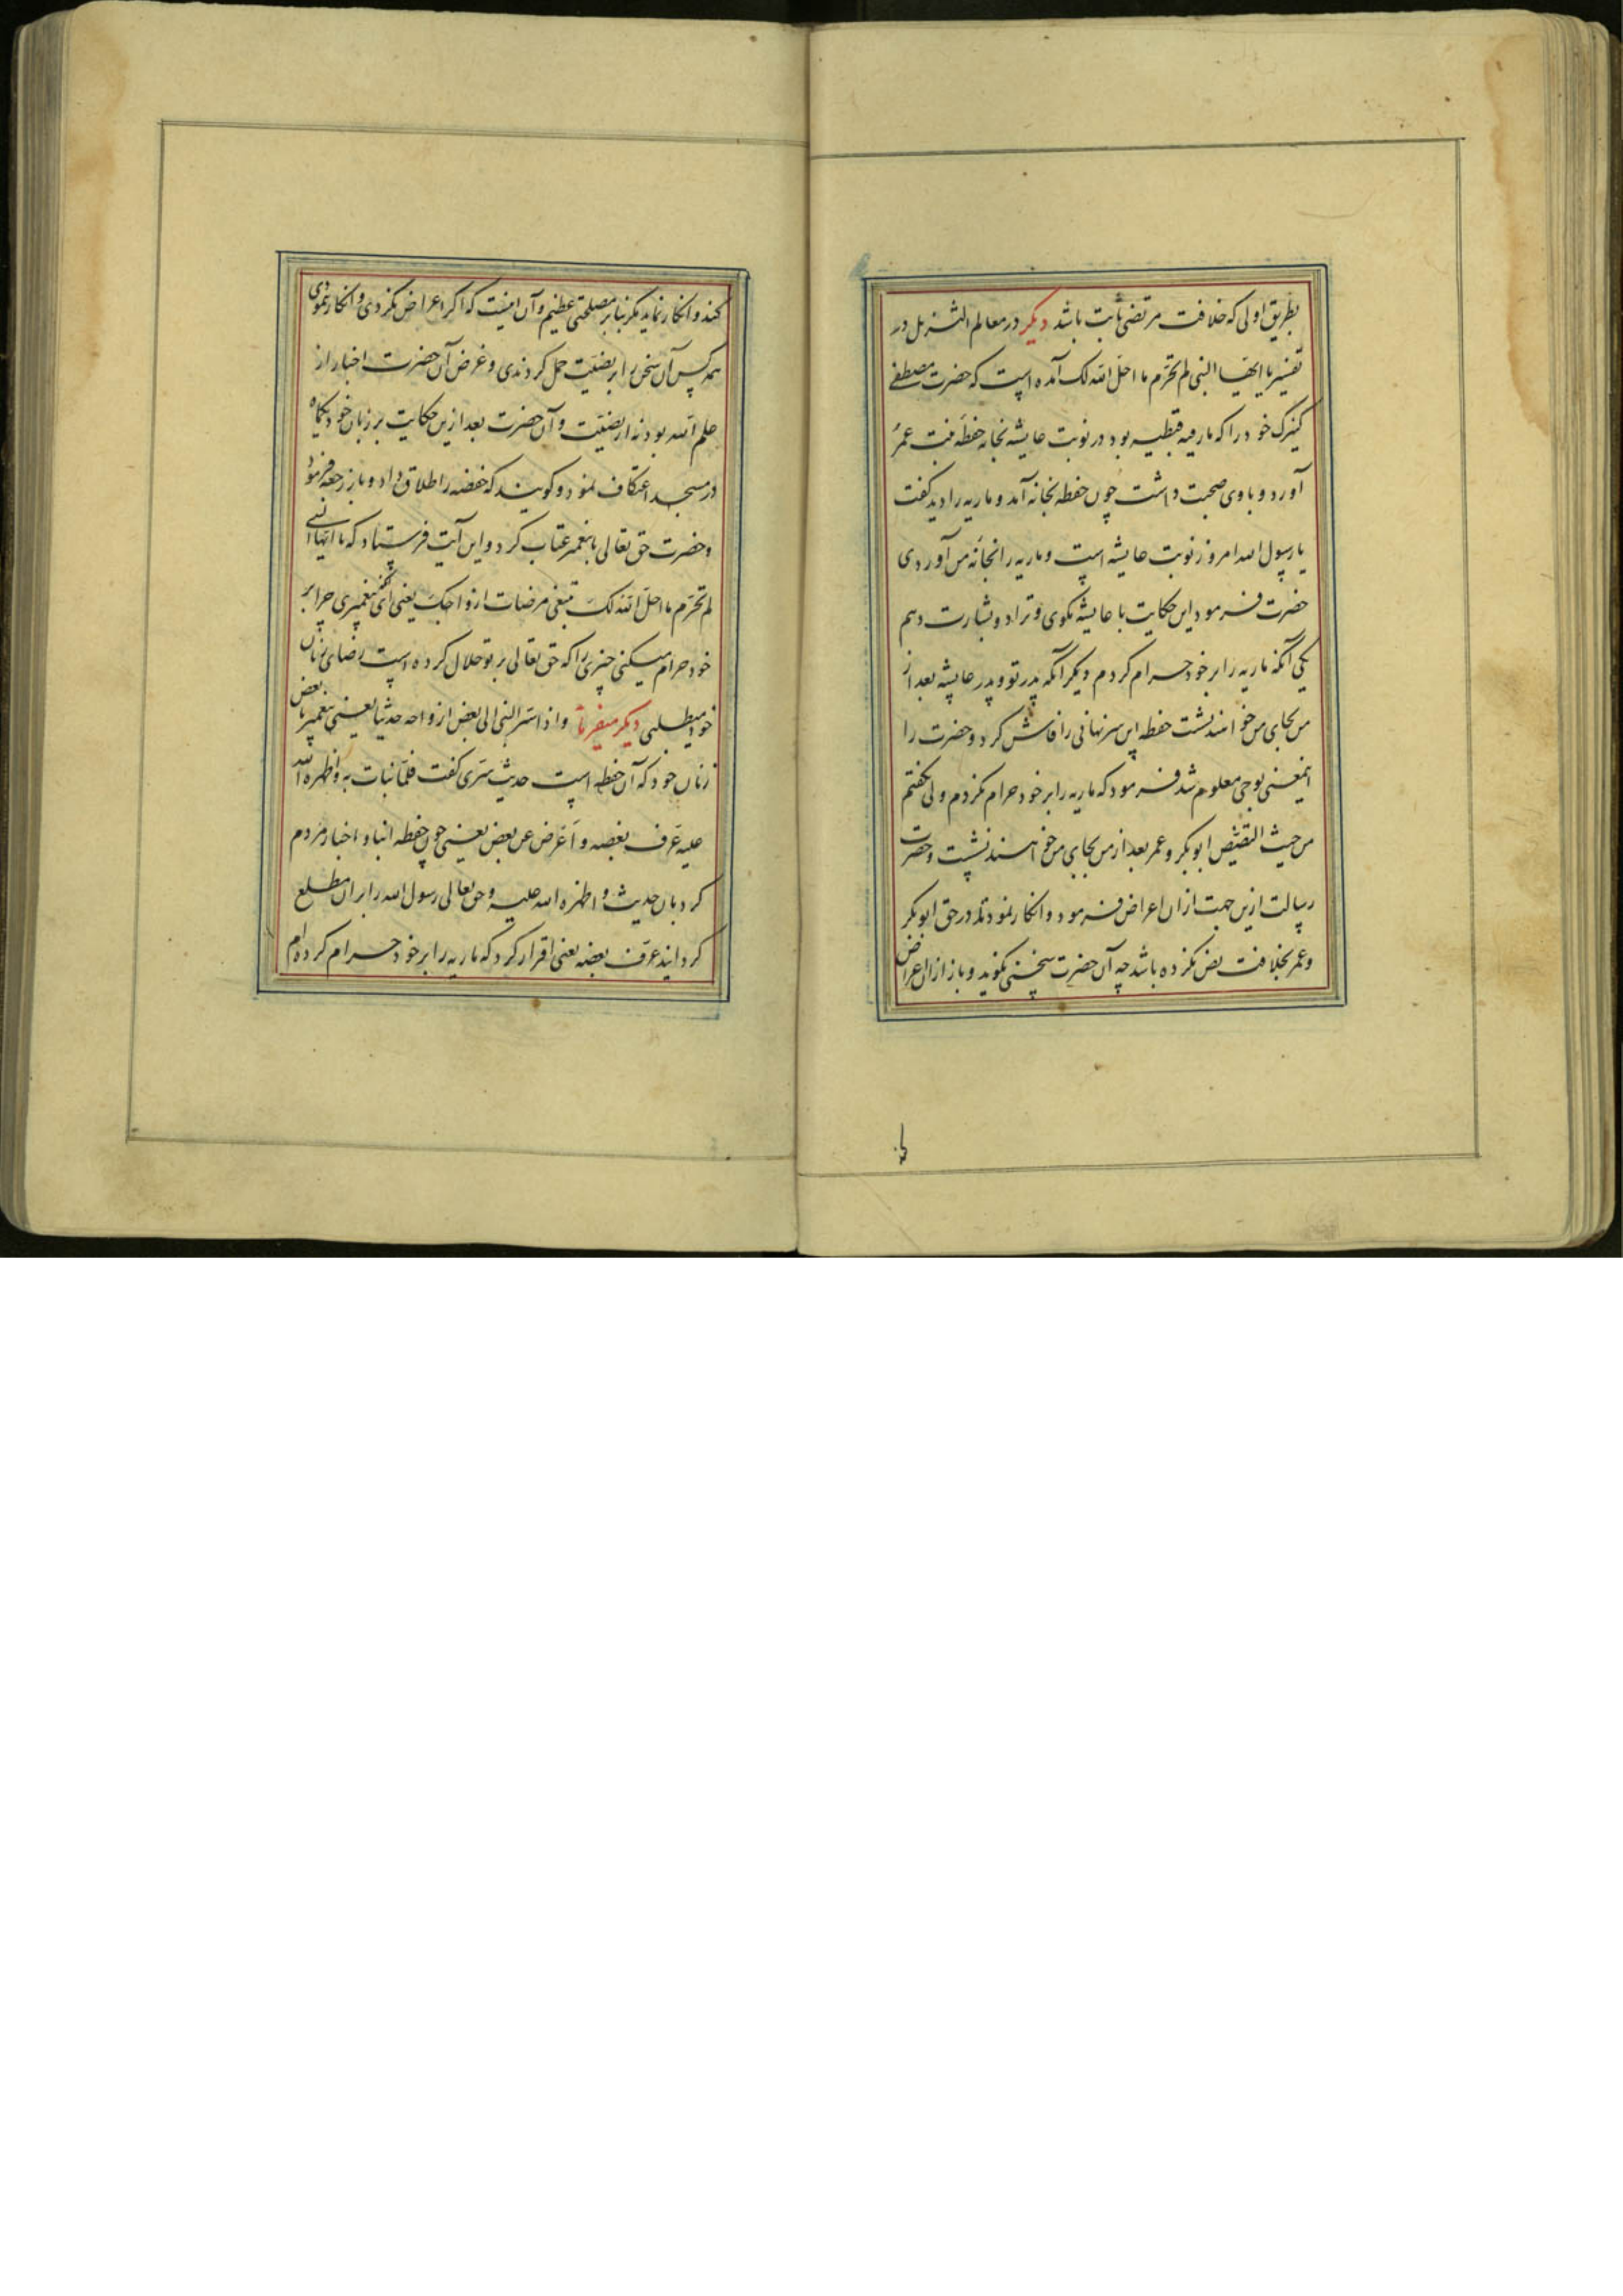 بطریق اولی که خلافت مرتضی ثابت باشد دیکر در معالم التنزیل در
تفسیر یا ایها النبی لم تحرم ما احل الله لک آمده است که حضرت مصطفی
کنیزک خود را که ماریه قبطیه بود در نوبت عایشه بخانه حفظه بنت عمر
آورد و با وی صحبت داشت چون حفطه بخانه آمد و ماریه را دید کفت
یا رسول الله امروز نوبت عایشه است و ماریه را بخانه من آوردی
حضرت فرمود این حکایت با عایشه مکوی و ترا دو بشارت دهم
یکی آنکه ماریه را بر خود حرام کردم و دیکر آنکه پدر تو و پدر عایشه بعد از
من بجای من خواهند نشست حفطه این سر نهانی را فاش کرد و حضرت را
اینمعنی بوحی معلوم شد فرمود که ماریه را بر خود حرام نکردم ولی نکفتم
من حیث ابوبکر و عمر بعد از من بجای من خواهند نشست و حضرت
رسالت ازین جهت ازان اعراض فرمود و انکار نمود تا در حق ابوبکر
و عمر بخلافت نص نکرده باشد چه آن حضرت سخنی نکوید و باز ازان اعراض
کند و انکار نماید مکر بنابر مصلحتی عظیم و آن اینست که اکر اعراض نکردی و انکار ننمودی
همه کس آن سخن را بر نصیت حمل کردندی و غرض آن حضرت اخبار از
علم الله بود نه از نصیت و آن حضرت بعد ازین حکایت بر زنان خود یکماه
در مسجد اعتکاف نمود و کویند که حفصه را طلاق داد و باز رجعه فرمود
و حضرت حق تعالی با پیغمبر عتاب کرد و این آیت فرستاد که یا ایها النبی
لم تحرم ما احل الله لک تبتغی مرضات ازواجک یعنی ای پیغمبری چرا بر
خود حرام میکنی چیزی را که حق تعالی بر تو حلال کرده است رضای زنان
خود میطلبی دیکر میفرماید و اذ اسر النبی الی بعض ازواجه حدیثا یعنی پیغمبر با بعض
زنان خود که آن حفطه است حدیث سری کفت فلما نبات به و اظهره الله
علیه عرف بعضه و اعرض عن بعض یعنی چون حفطه انبا و اخبار مردم
کرد بان حدیث و اظهره الله علیه و حق تعالی رسول الله را بران مطلع
کردانید عرف بعضه یعنی اقرار کرد که ماریه را بر خود حرام کرده ام